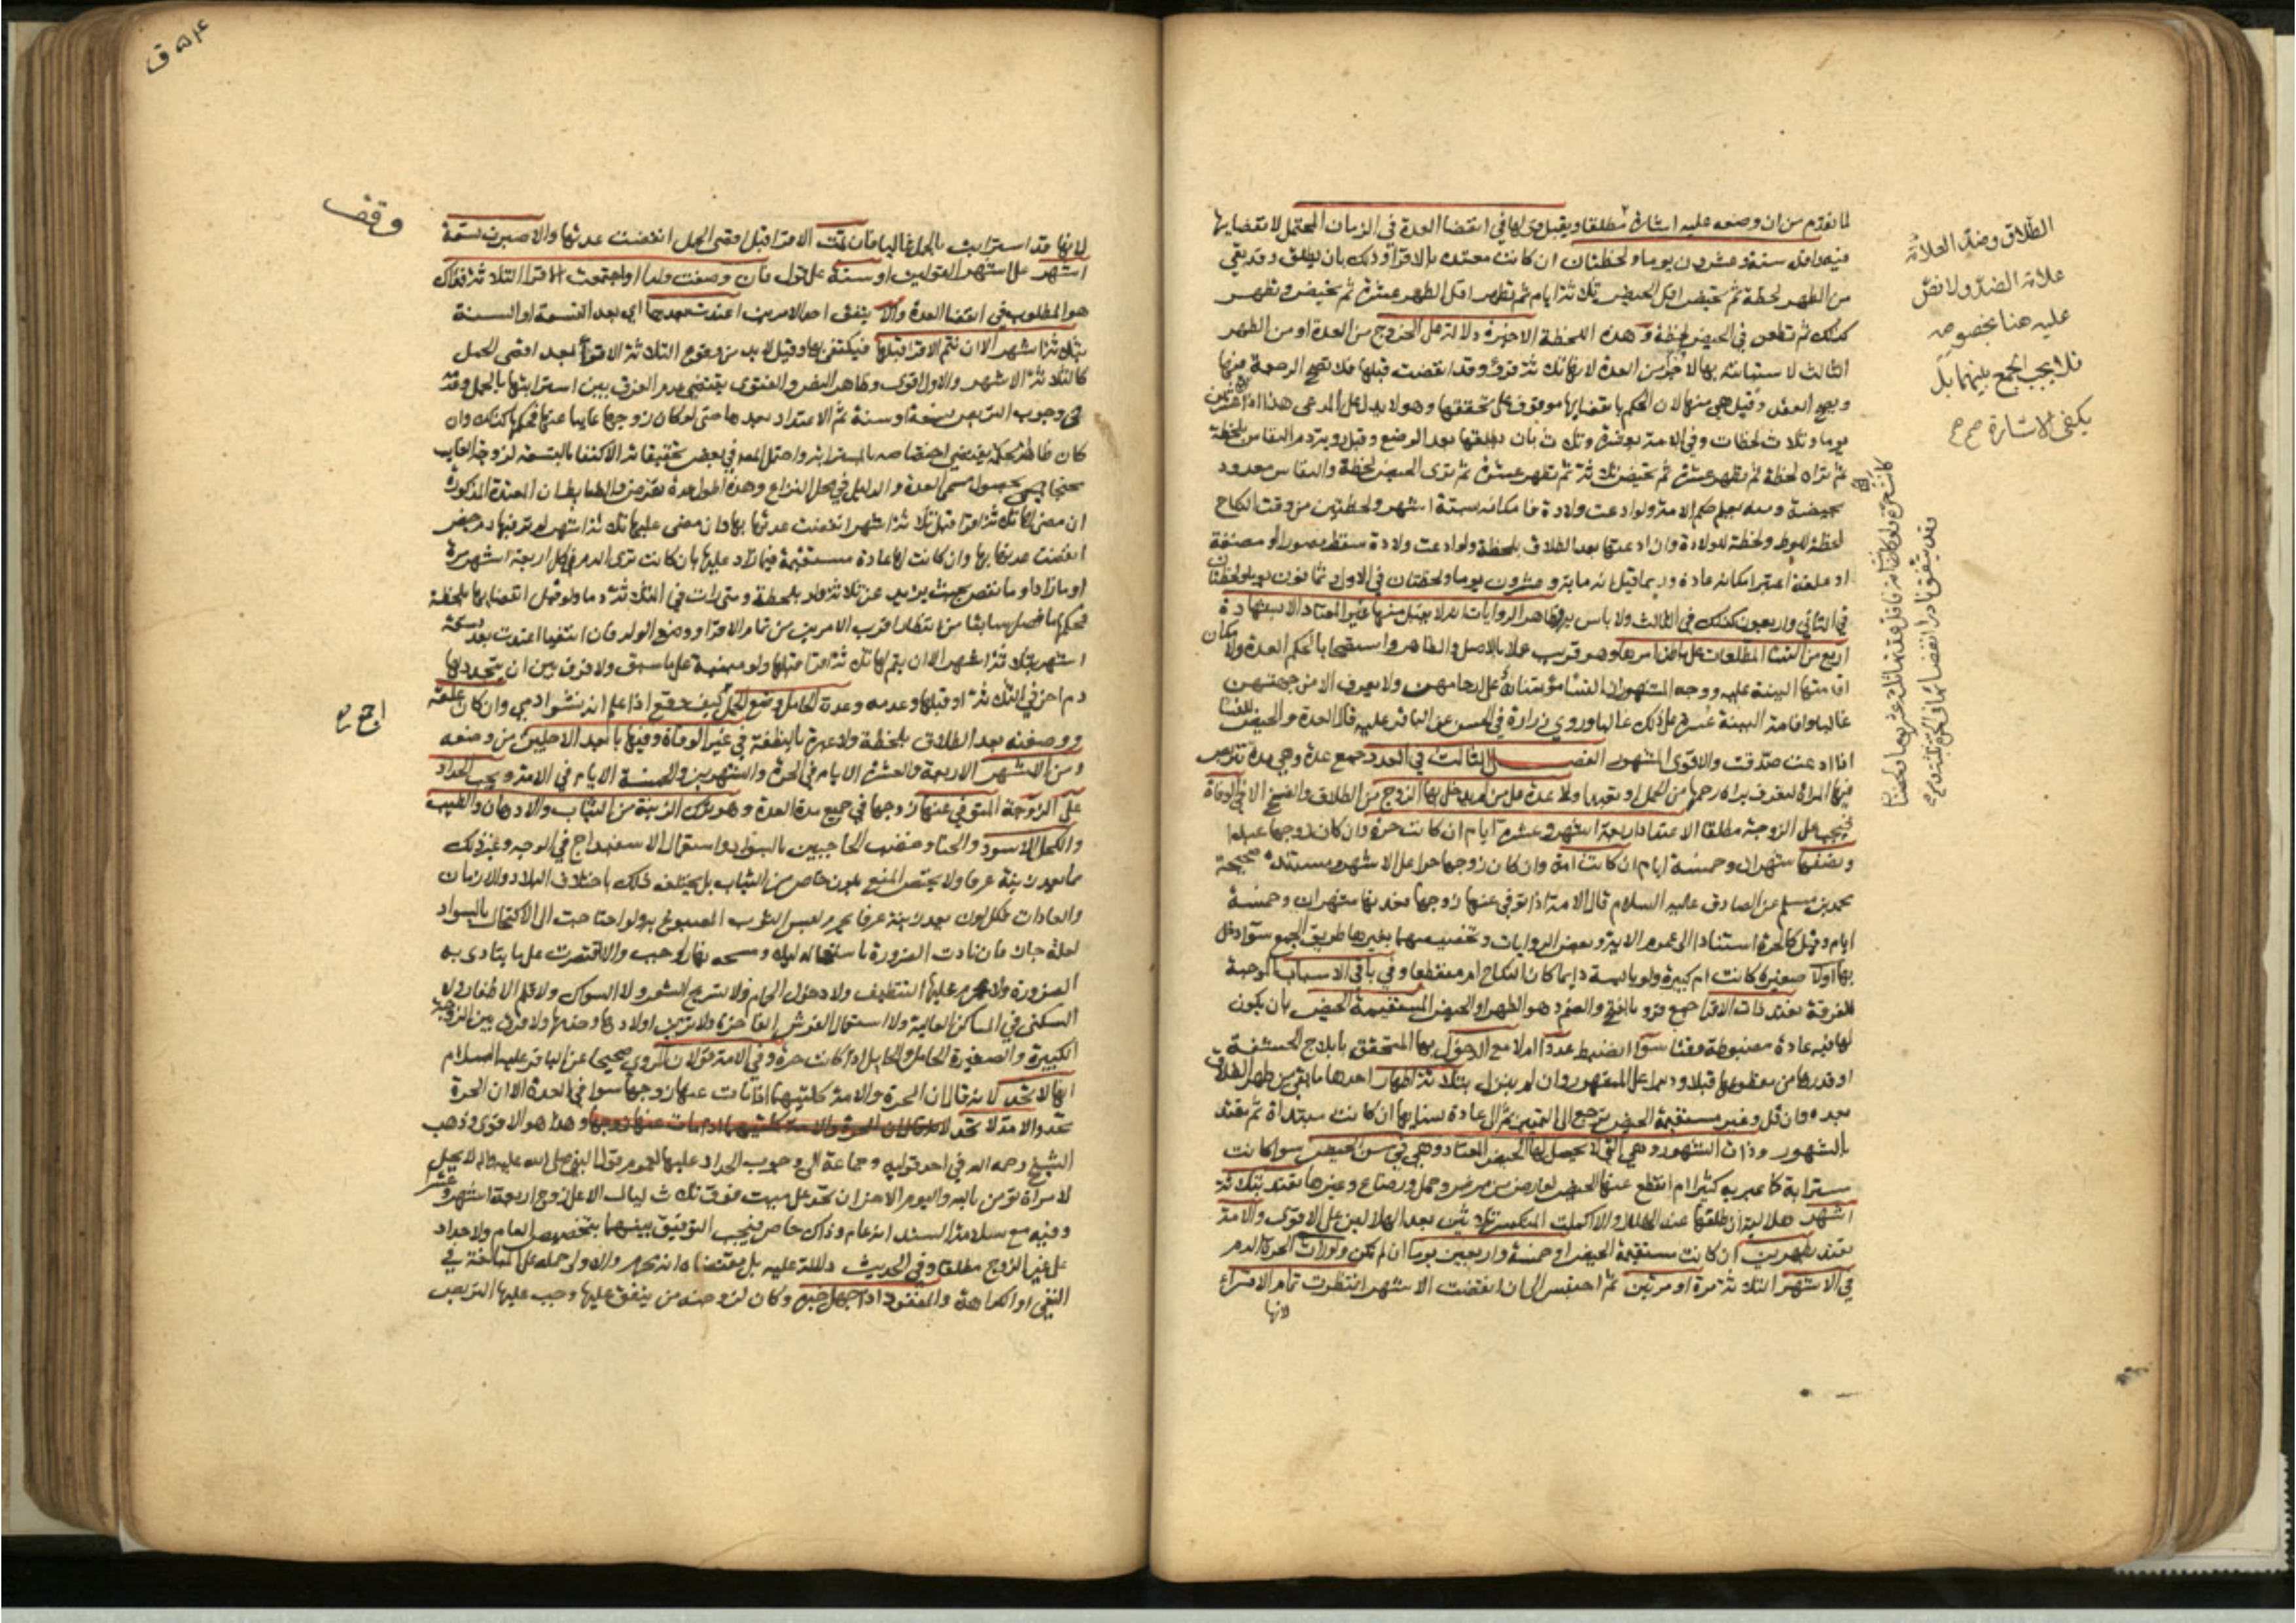 لما تقدم من ان وضعه عليه اشارة مطلقا ويقبل قولها في انقضا العدة في الزمان المحتمل لانقضايها
فيه واقله ستة وعشرون يوما ولحظتان ان كانت معتدة بالاقرا وذلك بان يطلق وقد بقي
من الطهر لحظة ثم تحيض اقل الحيض ثلاثة ايام ثم تطهر اقل الطهر عشرة ثم تحيض وتطهر
كذلك ثم تطعن في الحيض لحظة وهذه اللحظة الاخيرة دلالة على الخروج من العدة او من الطهر
الثالث لاستبانته بها لا من العدة لانها ثلاثة قروء وقد انقضت قبلها فلا تصح الرجعة فيها
ويصح العقد وقيل هي منها لان الحكم بانقضايها موقوف على تحققها وهو لا يدل على المدعى هذا
يوما وثلاث لحظات وفي الامة بان يطلقها بعد الوضع وقبل رؤية دم النفاس بلحظة
ثم تراه لحظة ثم تطهر عشرة ثم تحيض ثلاثة ثم تطهر عشرة ثم ترى الحيض لحظة والنفاس معدود
بحيضة ومنه يعلم حكم الامة ولو ادعت ولادة فامكانه ستة اشهر ولحظتين من وقت النكاح
لحظة للوطء ولحظة للولادة وان ادعتها بعد الطلاق بلحظة ولو ادعت ولادة سقط مصورا او مضغة
او علقة اعتبر امكانه عادة وربما قيل انه ماية وعشرون يوما ولحظتان في الاول وثمانون يوما ولحظتان
في الثاني واربعون كذلك في الثالث ولا باس به وظاهر الروايات انه لا يقبل منها غير المعتاد الا بشهادة
اربع من النسا المطلعات على باطن امرها وهو قريب عملا بالاصل والظاهر واستصحابا لحكم العدة ولامكان
اقامتها البينة عليه ووجه المشهور ان النسا مؤتمنات على ارحامهن ولا يعرف الا من جهتهن
غالبا واقامة البينة عسرة على ذلك غالبا وروى زرارة في الحسن عن الباقر عليه قال العدة والحيض للنسا
اذا ادعت صدقت والاقوى المشهور الفصل الثالث في العدد جمع عدة وهي مدة تتربص
فيها المراة لتعرف براة رحمها من الحمل او تعبدا ولا عدة على من لم يدخل بها الزوج من الطلاق والفسخ الا في الوفاة
فيجب على الزوجة مطلقا الاعتداد اربعة اشهر وعشرة ايام ان كانت حرة وان كان زوجها عبدا
ونصفها شهران وخمسة ايام ان كانت امة وان كان زوجها حرا على الاشهر ومستنده صحيحة
محمد بن مسلم عن الصادق عليه السلام قال الامة اذا توفي عنها زوجها فعدتها شهران وخمسة
ايام وقيل كالحرة استنادا الى عموم الاية وبعض الروايات وتخصيصهما بغيرها طريق الجمع سوآء دخل
بها اولا صغيرة كانت ام كبيرة ولو يايسة دايما كان النكاح ام منقطعا وفي باقي الاسباب الموجبة
للفرقة تعتد ذات الاقرا جمع قرء بالفتح والضم وهو الطهر او الحيض المستقيمة الحيض بان يكون
لها فيه عادة مضبوطة وقتا سوآ انضبط عددا ام لا مع الدخول بها المتحقق بايلاج الحشفة
او قدرها من مقطوعها قبلا ودبرا على المشهور وان لم ينزل بثلاثة اطهار احدها ما بقي من طهر الطلاق
بعده وان قل وغير مستقيمة الحيض ترجع الى التمييز ثم الى عادة نسايها ان كانت مبتداة ثم تعتد
بالشهور وذات الشهور وهي التي لا يحصل لها الحيض المعتاد وهي في سن الحيض سوا كانت
مسترابة كما عبر به كثير ام انقطع عنها الحيض لعارض من مرض وحمل ورضاع وغيرها تعتد بثلاثة
اشهر هلالية ان طلقها عند الهلال والا اكملت المنكسر ثلاثين بعد الهلالين على الاقوى والامة
تعتد بطهرين ان كانت مستقيمة الحيض او خمسة واربعين يوما ان لم تكن ولو رات الحرة الدم
في الاشهر الثلاثة مرة او مرتين ثم احتبس الى ان انقضت الاشهر انتظرت تمام الاقراء
لانها
الطلاق وضد العلاثة
علاثة الضد ولا نص
عليه هنا بخصوصه
فلا يجب الجمع بينهما بل
يكفي الاشارة صح صح
وقف
لانها قد استرابت بالحمل غالبا فان تمت الاقرا قبل اقصى الحمل انقضت عدتها والا صبرت تسعة
اشهر على اشهر القولين او سنة على قول فان وضعت ولدا او اجتمعت الاقرا الثلاثة فذاك
هو المطلوب في انقضا العدة والا يتفق احد الامرين اعتدت بعدها اي بعد التسعة او السنة
بثلاثة اشهر الا ان تتم الاقرا قبلها فيكتفى بها وقيل لابد من وقوع الثلاثة الاقراء بعد اقصى الحمل
كالثلاثة الاشهر والاول اقوى وظاهر النص والفتوى يقتضي عدم الفرق بين استرابتها بالحمل وعدمه
في وجوب التربص تسعة او سنة ثم الاعتداد بعدها حتى لو كان زوجها غايبا عنها فحكمها كذلك وان
كان ظاهر الحكمة يقتضي اختصاصه بالمسترابة واحتمل المص في بعض تحقيقاته الاكتفا بالتسعة لزوجة الغايب
محتجا بحصول مسمى العدة والدليل في محل النزاع وهذه اطول عدة تفرض والضابط ان المعتدة المذكورة
ان مضى لها ثلاثة اقرا قبل ثلاثة اشهر انقضت عدتها بها وان مضى عليها ثلاثة اشهر لم تر فيها دم حيض
انقضت عدتها بها وان كانت لها عادة مستقيمة فيما زاد عليها بان كانت ترى الدم في كل اربعة اشهر مرة
او ما زاد او ما نقص بحيث يزيد عن ثلاثة ولو بلحظة ومتى رات في الثلاثة دما ولو قبل انقضايها بلحظة
فحكمها ما فصل سابقا من انتظار اقرب الامرين من تمام الاقرا ووضع الولد فان انتفيا اعتدت بعد تسعة
اشهر بثلاثة اشهر الا ان يتم لها ثلاثة اقرا قبلها ولو مبنية على ما سبق ولا فرق بين ان يتجدد لها
دم اخر في الثلاثة او قبلها وعدمه وعدة الحامل وضع الحمل كيف وقع اذا علم انه نشو ادمي وان كان علقة
ووضعته بعد الطلاق بلحظة ولا عبرة بالنطفة في غير الوفاة وفيها بابعد الاجلين من وضعه
ومن الاشهر الاربعة والعشرة الايام في الحرة والشهرين والخمسة الايام في الامة ويجب الحداد
على الزوجة المتوفى عنها زوجها في جميع مدة العدة وهو ترك الزينة من الثياب والادهان والطيب
والكحل الاسود والحنا وخضب الحاجبين بالسواد واستعمال الاسفيداج في الوجه وغير ذلك
مما يعد زينة عرفا ولا يختص المنع بلون خاص من الثياب بل يختلف ذلك باختلاف البلاد والازمان
والعادات فكل لون يعد زينة عرفا يحرم لبس الثوب المصبوغ به ولو احتاجت الى الاكتحال بالسواد
لعلة جاز فان تادت الضرورة باستعماله ليلا ومسحه نهارا وجب والا اقتصرت على ما يتادى به
الضرورة ولا يحرم عليها التنظيف ولا دخول الحمام ولا تسريح الشعر ولا السواك ولا قلم الاظفار ولا
السكنى في المساكن العالية ولا استعمال الفرش الفاخرة ولا تزيين اولادها وخدمها ولا فرق بين الزوجة
الكبيرة والصغيرة الحامل والحايل اذا كانت حرة وفي الامة قولان المروي صحيحا عن الباقر عليه السلام
انها لا تحد لانه قال ان الحرة والامة كلتيهما اذا مات عنها زوجها سوا في العدة الا ان الحرة
تحد والامة لا تحد لانه قال ان الحرة والامة كلتيهما اذا مات عنها زوجها وهذا هو الاقوى وذهب
الشيخ رحمه الله في احد قوليه وجماعة الى وجوب الحداد عليها لعموم قول النبي صلى الله عليه واله لا يحل
لامراة تؤمن بالله واليوم الاخر ان تحد على ميت فوق ثلاث ليال الا على زوج اربعة اشهر وعشرا
وفيه مع سلامة السند انه عام وذاك خاص فيجب التوفيق بينهما بتخصيص العام ولا حداد
على غير الزوج مطلقا وفي الحديث دلالة عليه بل مقتضاه انه محرم والاولى حمله على المبالغة في
النفي او الكراهة والمفقود اذا جهل خبره وكان لزوجته من ينفق عليها وجب عليها التربص